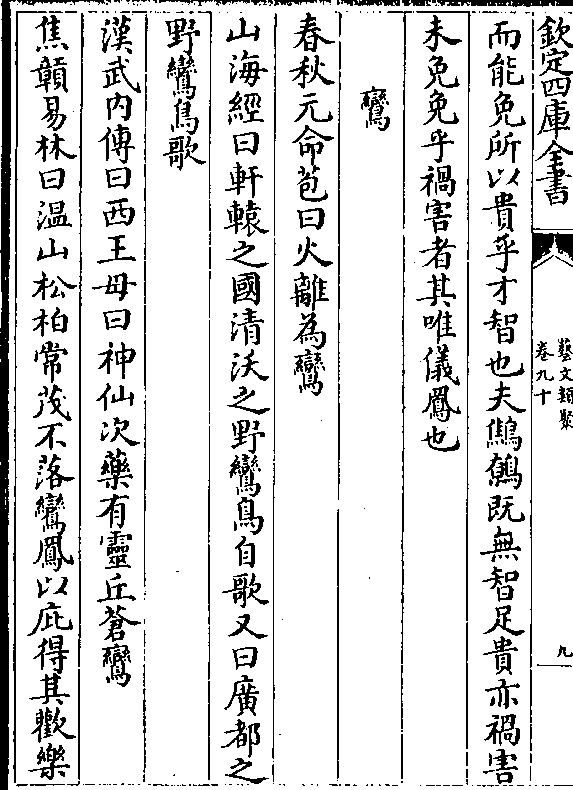 欽定四庫全書
藝文類聚
卷九十
九
而能免所以貴乎才智也夫鷦鵝既無智足貴亦禍害
未免免乎禍害者其唯儀鳳也
鸞
春秋元命苞曰火離為鸞
山海經曰軒轅之國清沃之野鸞鳥自歌又曰廣都之
野鸞鳥歌
漢武内傳曰西王母曰神仙次藥有靈丘蒼鸞
焦贛易林曰温山松柏常茂不落鸞鳳以庇得其歡樂